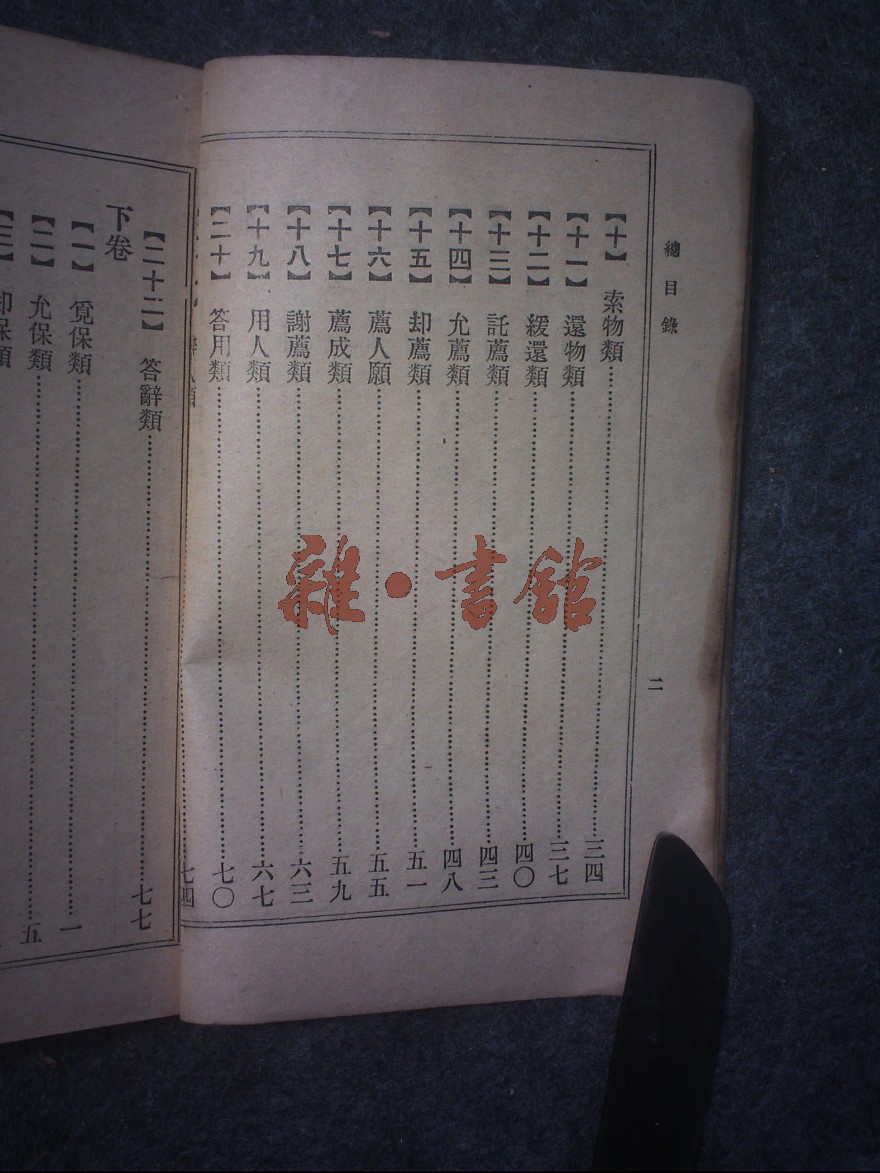 總目錄
二
【十】 索物類 三四
【十一】 還物類 三七
【十二】 緩還類 四〇
【十三】 託薦類 四三
【十四】 允薦類 四八
【十五】 却薦類 五一
【十六】 薦人願 五五
【十七】 薦成類 五九
【十八】 謝薦類 六三
【十九】 用人類 六七
【二十】 答用類 七〇
七四
【二十二】 答辭類 七七
下卷
【一】 覓保類 一
【二】 允保類 五
【三】 却保類
雜·書館